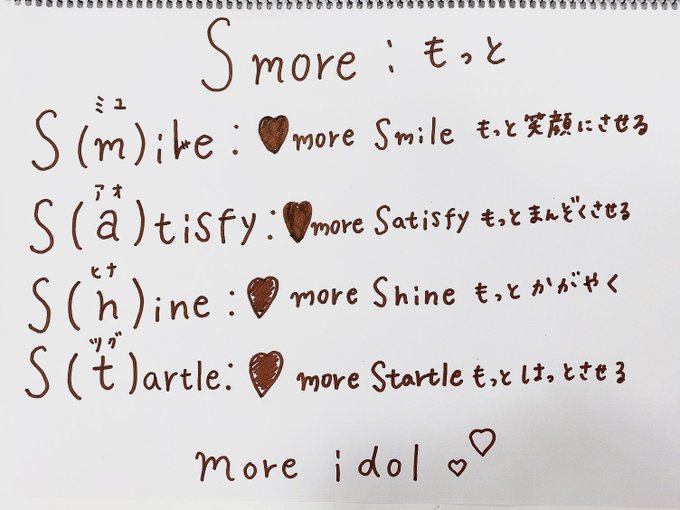 Smore : もっと
ミュ
S(m)ile : more Smile もっと笑顔にさせる
アオ
S(a)tisfy : more Satisfy もっとまんぞくさせる
ヒナ
S(h)ine : more Shine もっとかがやく
ツグ
S(t)artle : more Startle もっとはっとさせる
more idol